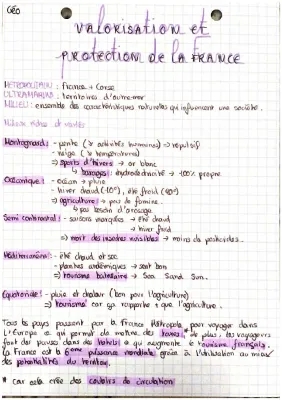 GÉO
VALORISATION et
PROTECTION DE LA FRANCE
METROPOLITAIN : France + Corse
ULTRAMARIN : territoires d'outre-mer
MILIEU : ensemble des caractéristiques naturelles qui influencent une société.
Milieux riches et variés
Montagnard : - pente (↘ activités humaines) → répulsif
- neige (↘ températures)
⇒ sports d'hivers → or blanc
↳ barrages : hydroélectricité → 100% propre
Océanique : - océan → pluie
- hiver doux (10°), été frais (20°)
⇒ agriculture → pas de famine
↳ pas besoin d'arrosage
Semi continental : - saisons marquées → été chaud
→ hiver froid
⇒ mort des insectes nuisibles → moins de pesticides.
Méditerranéen : - été chaud et sec
- plantes endémiques → sent bon
⇒ tourisme balnéaire → Sea Sand Sun.
Equatoriale : - pluie et chaleur (bon pour l'agriculture)
⇒ tourisme car ça rapporte + que l'agriculture.
Tous les pays passent par la France Métropole pour voyager dans
L'Europe ce qui permet de mettre des taxes.* De plus, les voyageurs
font des pauses dans des hôtels ce qui augmente le tourisme français.
La France est la 6ème puissance mondiale grâce à l'utilisation au mieux
des potentialités du territoire.
* car cela crée des couloirs de circulation